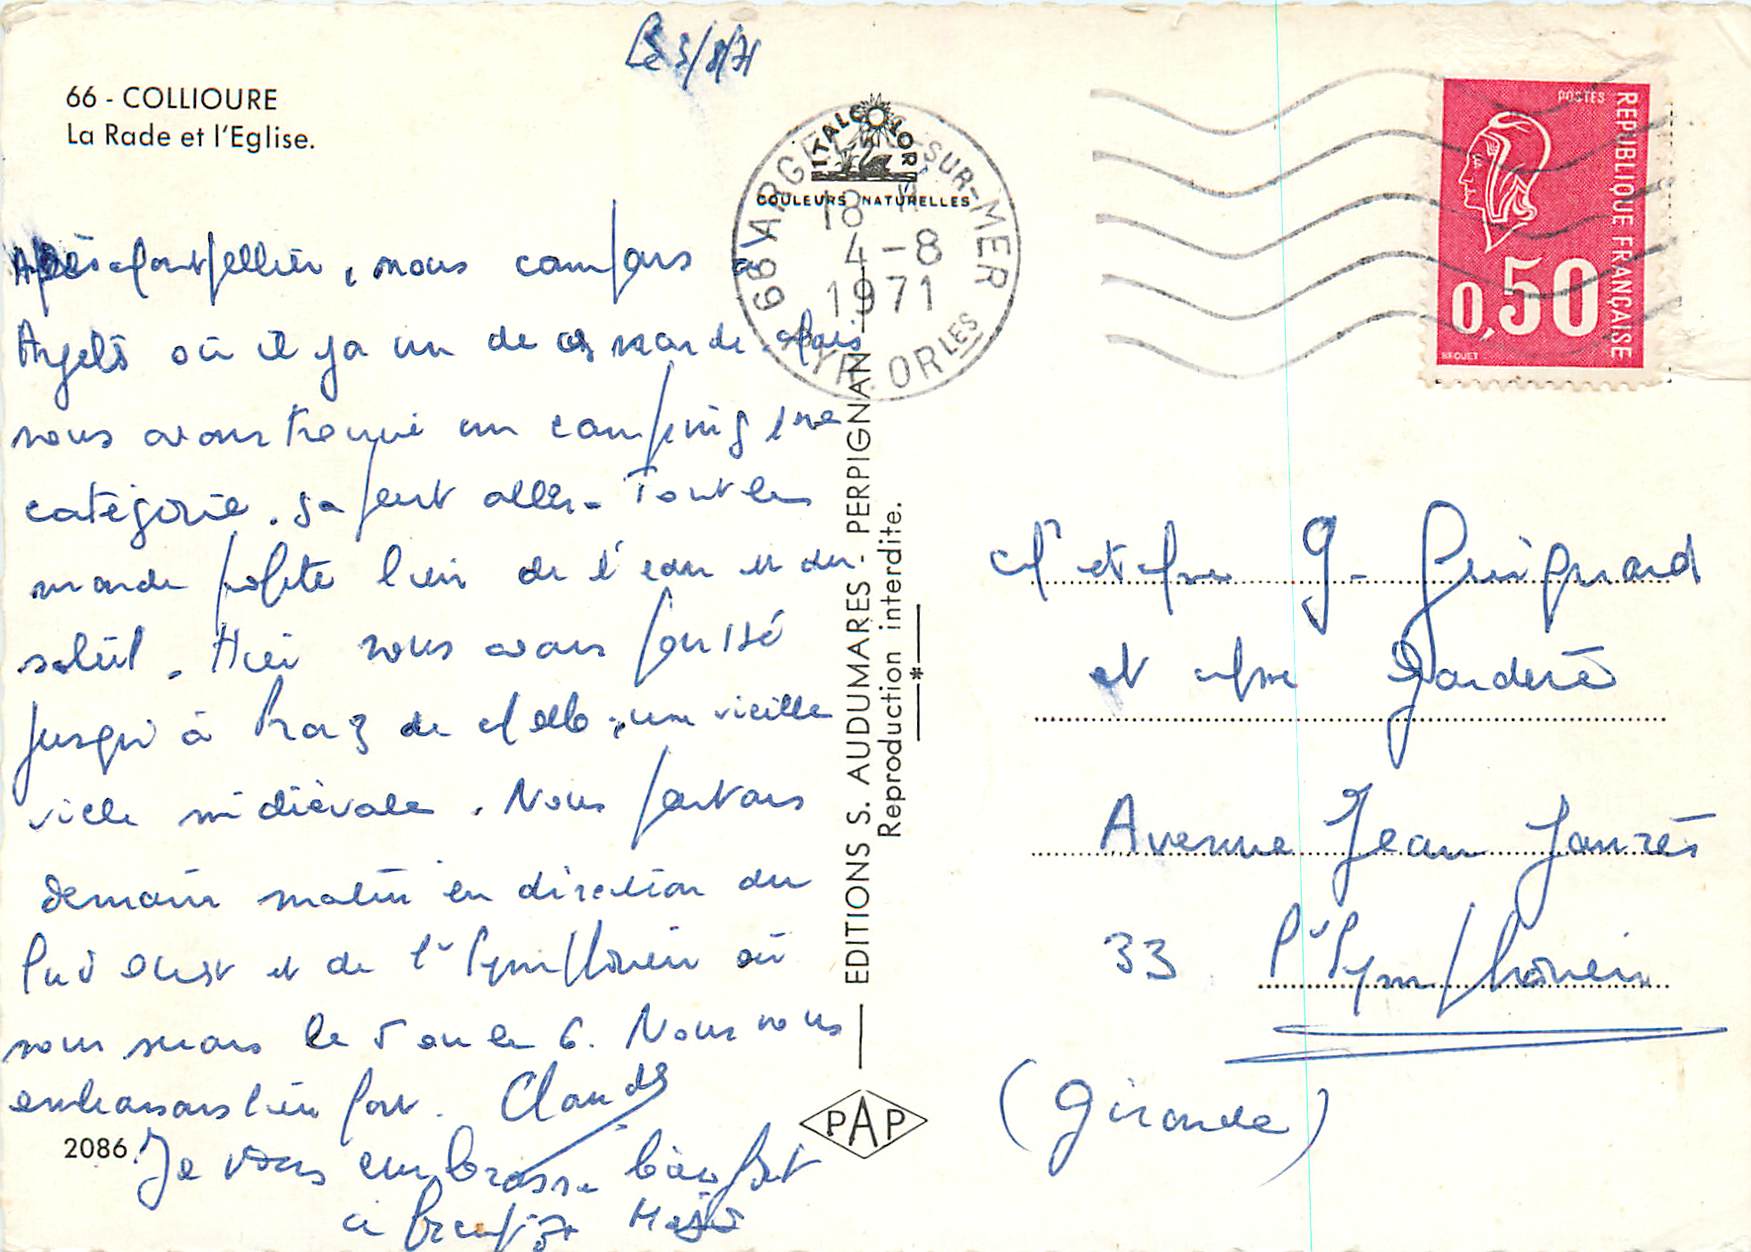 Le 3/8/71
66 - COLLIOURE
La Rade et l'Eglise.
ITALCOLOR
COULEURS NATURELLES
66 ARGELES-SUR-MER
18 H
4-8
1971
PYR. ORLES
POSTES
REPUBLIQUE FRANÇAISE
0,50
BEQUET
Après Montpellier, nous campons à
Argelès où il y a un de ces monde. Mais
nous avons trouvé un camping 1re
catégorie. ça peut aller. Tout le
monde profite bien de l'eau et du
soleil. Hier nous avons poussé
jusqu'à Praz de Mollo, une vieille
ville médiévale. Nous partons
demain matin en direction du
Sud ouest et de St Symphorien où
nous serons le 5 ou le 6. Nous vous
embrassons bien fort. Claude
Je vous embrasse bien fort
à bientôt
2086
EDITIONS S. AUDUMARES - PERPIGNAN
Reproduction interdite.
PAP
Mr et Mme G. Guignard
et Mme Garderè
Avenue Jean Jaurès
33 St Symphorien
(Gironde)